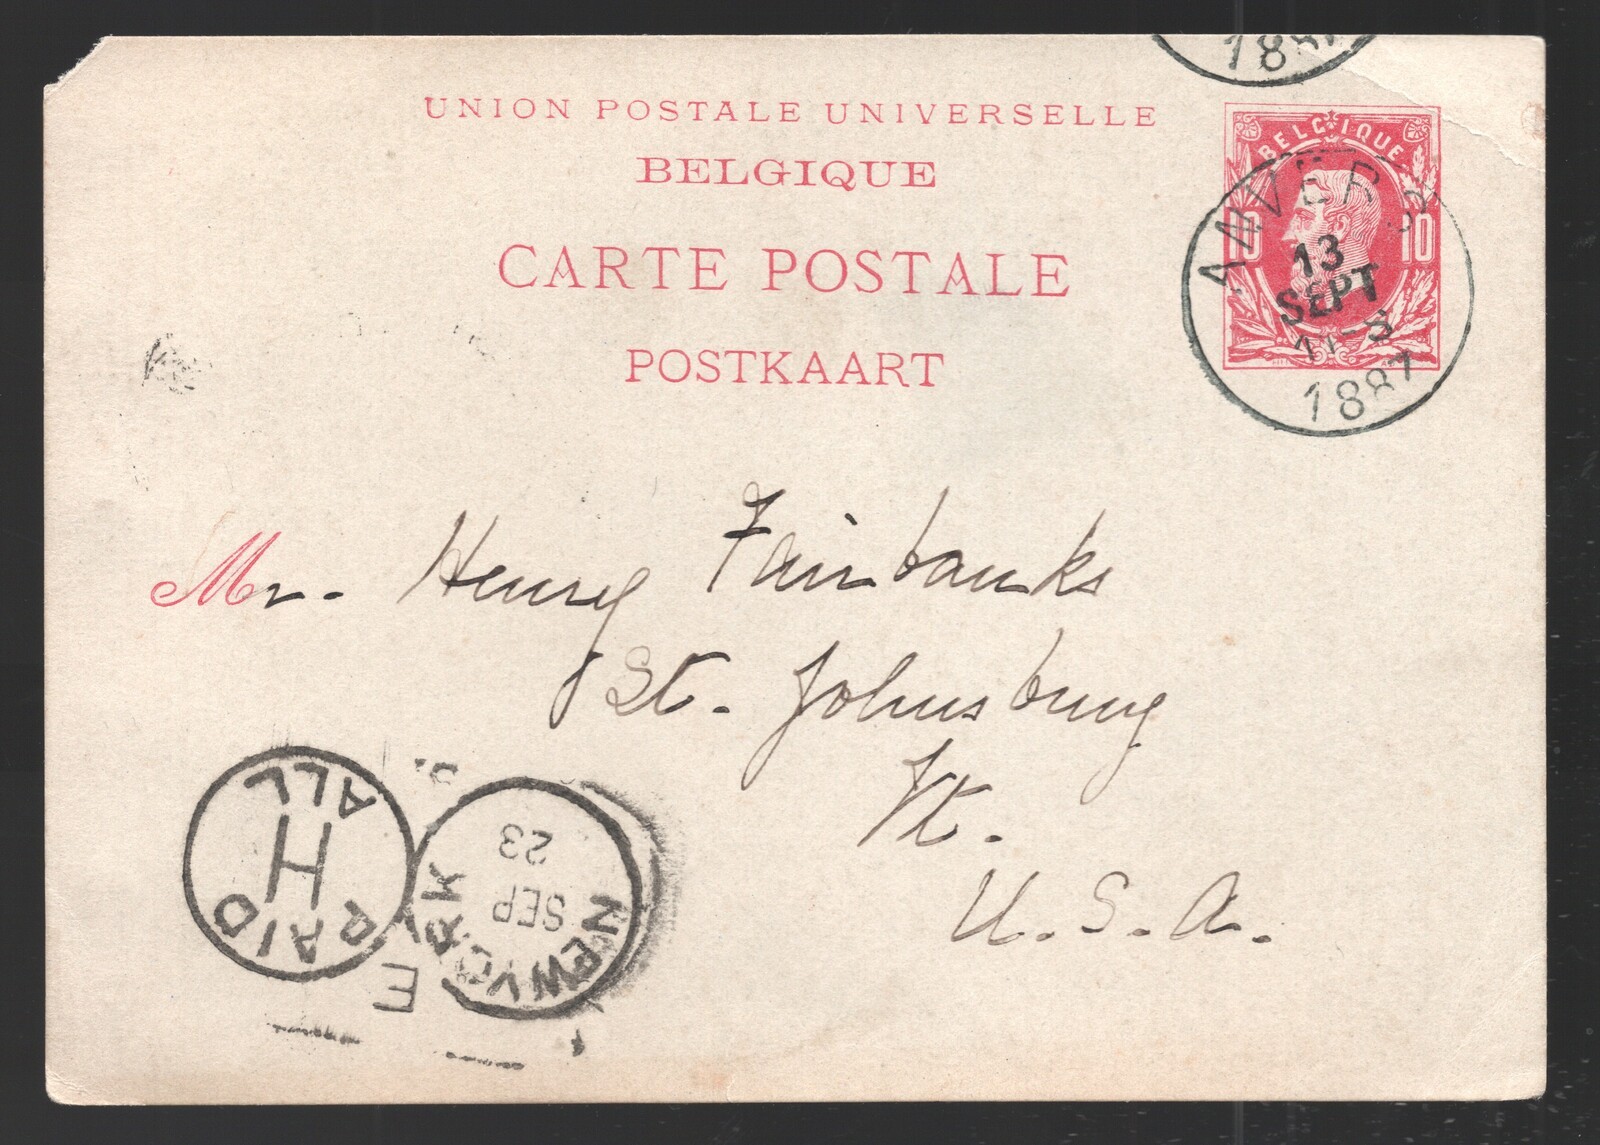 1887
UNION POSTALE UNIVERSELLE
BELGIQUE
CARTE POSTALE
POSTKAART
BELGIQUE
10 10
ANVERS
13
SEPT
1887
Mr. Henry Fairbanks
St. Johnsbury
Vt.
U. S. A.
PAID
H
ALL
NEW YORK
SEP
23
E